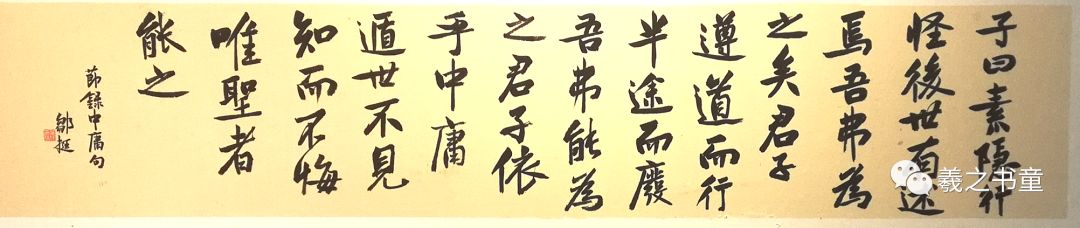 子曰素隱行
怪後世有述
焉吾弗為
之矣君子
遵道而行
半途而廢
吾弗能為
之君子依
乎中庸
遁世不見
知而不悔
唯聖者
能之
節錄中庸句
鄒挺
羲之书童